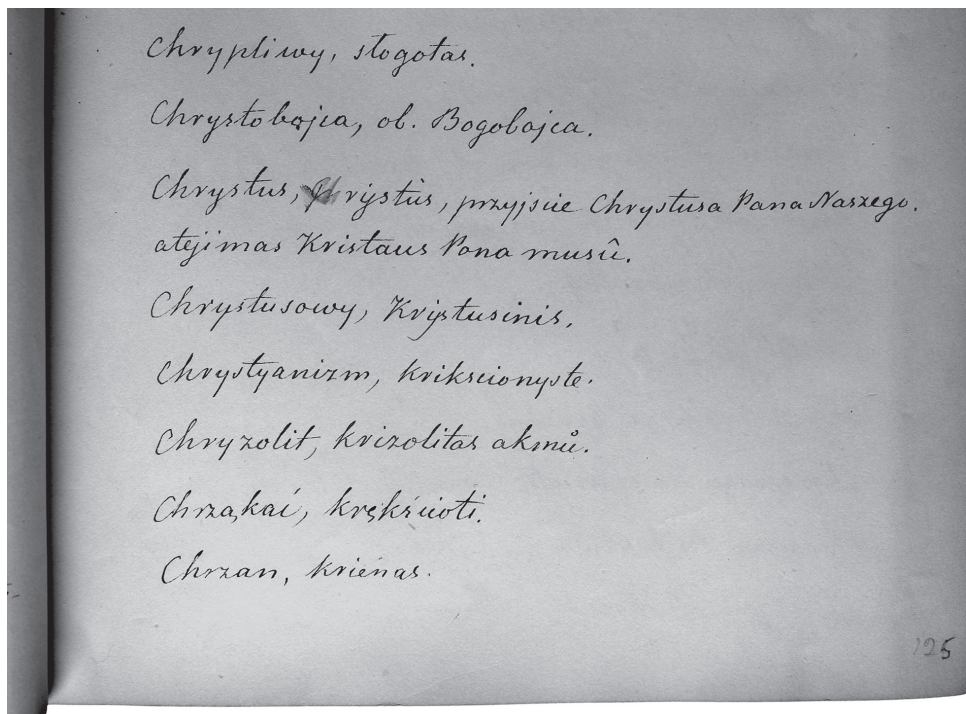 Chrypliwy, słogołas.
Chrystobojca, ob. Bogobojca.
Chrystus, przyjście Chrystusa Pana Naszego.
atejimas Kristaus Pona musû.
Chrystusowy, Kristusinis.
Chrystyanizm, krikscionyste.
Chryzolit, krizolitas akmů.
Chrząkać, krękścioti.
Chrzan, krienas.
125